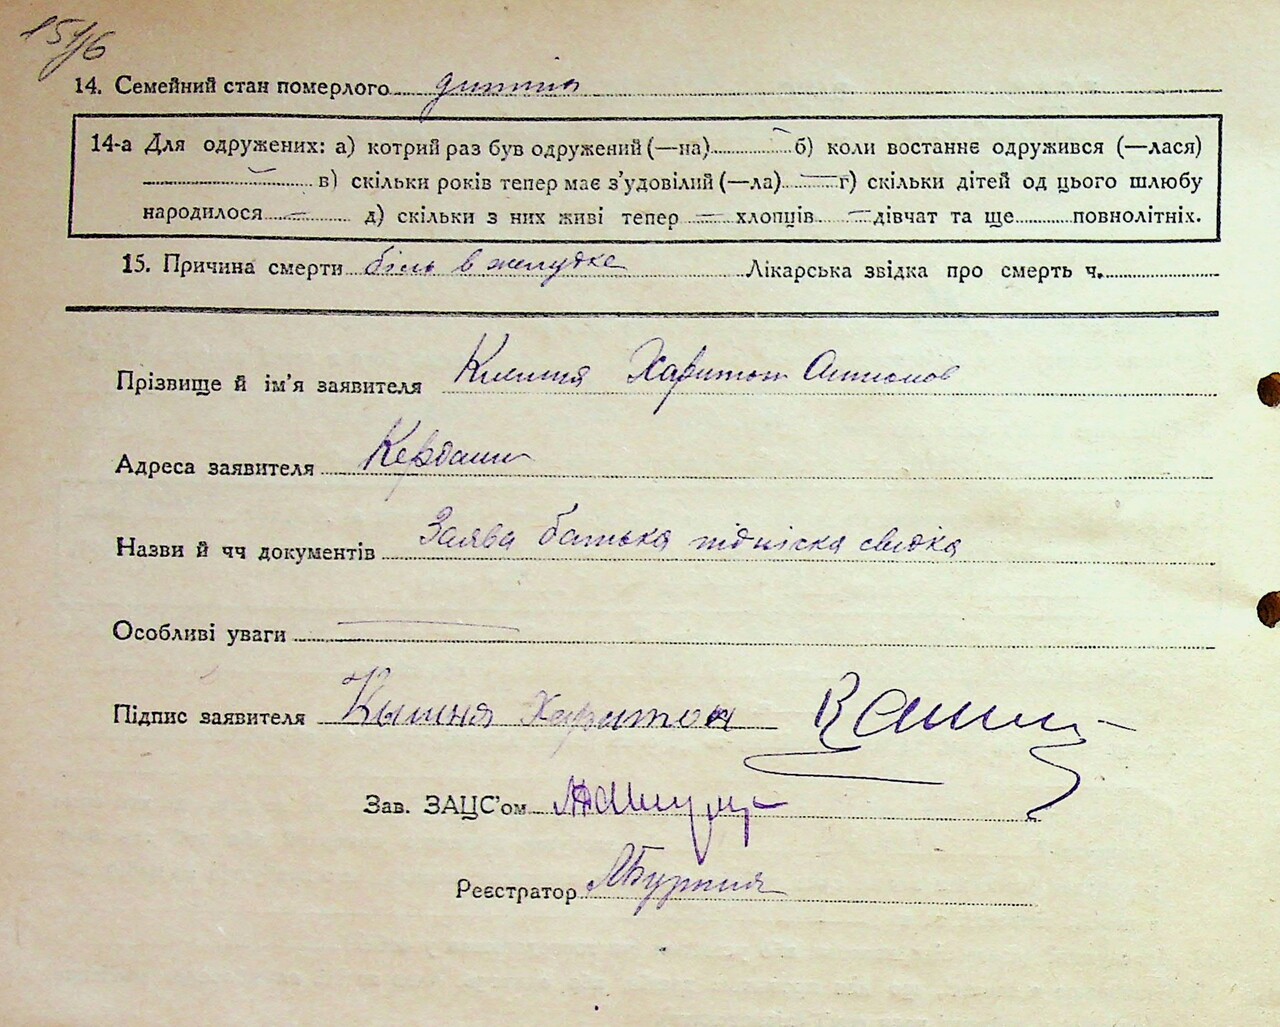 15/6
14. Семейний стан померлого дитина
14-а Для одружених: а) котрий раз був одружений (—на) — б) коли востаннє одружився (—лася)
— в) скільки років тепер має з’удовілий (—ла) — г) скільки дітей од цього шлюбу
народилося — д) скільки з них живі тепер — хлопців — дівчат та ще повнолітніх.
15. Причина смерти біль в желудке Лікарська звідка про смерть ч.
Прізвище й ім’я заявителя Харитон Антонов
Адреса заявителя Кердани
Назви й чч документів Заява батька підписка свідка
Особливі уваги —
Підпис заявителя Харитон
Зав. ЗАЦС’ом
Реєстратор